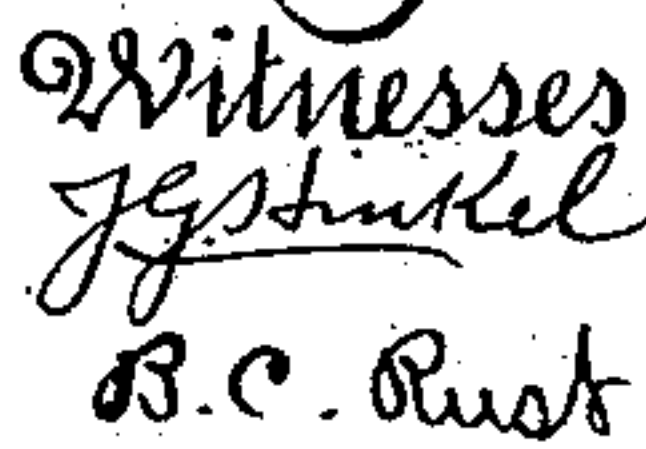 Witnesses
J G Stinkel
B. C. Rust